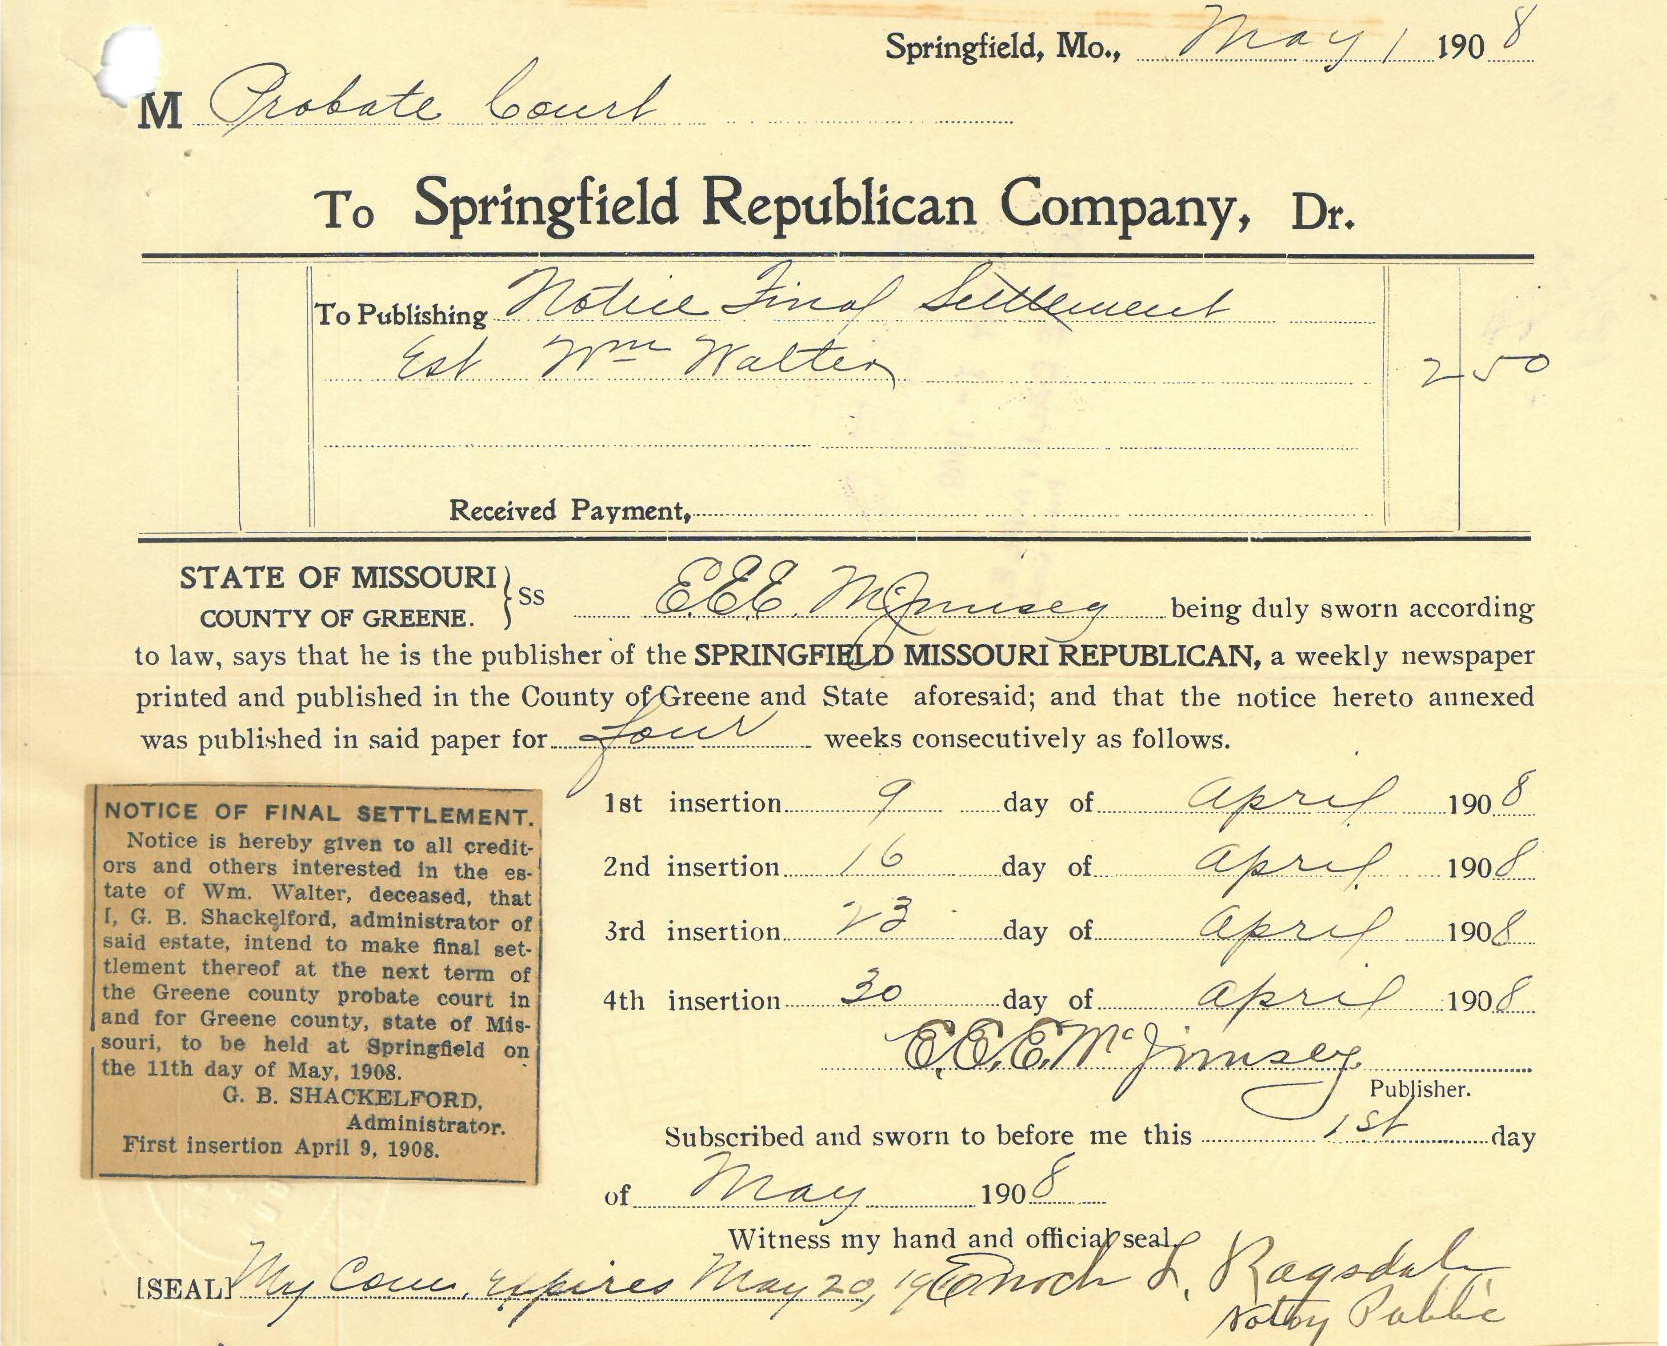 Springfield, Mo., May 1 1908
M Probate Court
To Springfield Republican Company, Dr.
To Publishing Notice Final Settlement
Est Wm Walter 2 50
Received Payment,
STATE OF MISSOURI
COUNTY OF GREENE. } SS E.E.E. McJimsey being duly sworn according
to law, says that he is the publisher of the SPRINGFIELD MISSOURI REPUBLICAN, a weekly newspaper
printed and published in the County of Greene and State aforesaid; and that the notice hereto annexed
was published in said paper for four weeks consecutively as follows.
NOTICE OF FINAL SETTLEMENT.
Notice is hereby given to all credit-
ors and others interested in the es-
tate of Wm. Walter, deceased, that
I, G. B. Shackelford, administrator of
said estate, intend to make final set-
tlement thereof at the next term of
the Greene county probate court in
and for Greene county, state of Mis-
souri, to be held at Springfield on
the 11th day of May, 1908.
G. B. SHACKELFORD,
Administrator.
First insertion April 9, 1908.
1st insertion 9 day of April 1908
2nd insertion 16 day of April 1908
3rd insertion 23 day of April 1908
4th insertion 30 day of April 1908
E.E.E. McJimsey
Publisher.
Subscribed and sworn to before me this 1st day
of May 1908
Witness my hand and official seal.
[SEAL] My Com. expires May 20, Enoch L. Ragsdale
Notry Public